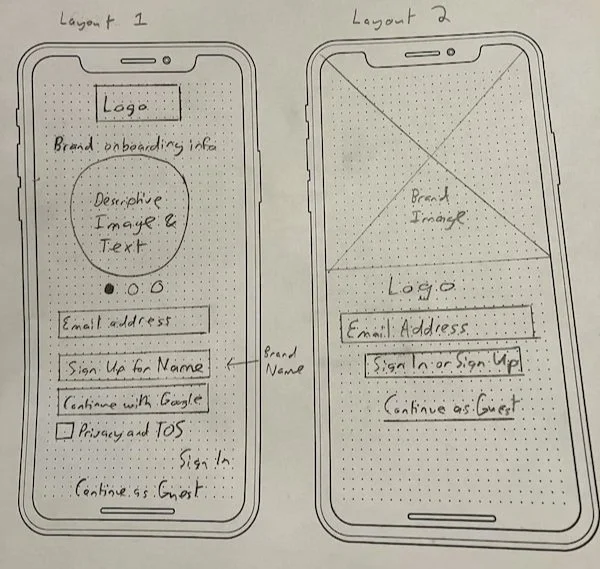 Layout 1
Logo
Brand onboarding info
Descriptive
Image &
Text
Email address
Sign Up for Name
Brand
Name
Continue with Google
Privacy and TOS
Sign In
Continue as Guest
Layout 2
Brand
Image
Logo
Email Address
Sign In or Sign Up
Continue as Guest